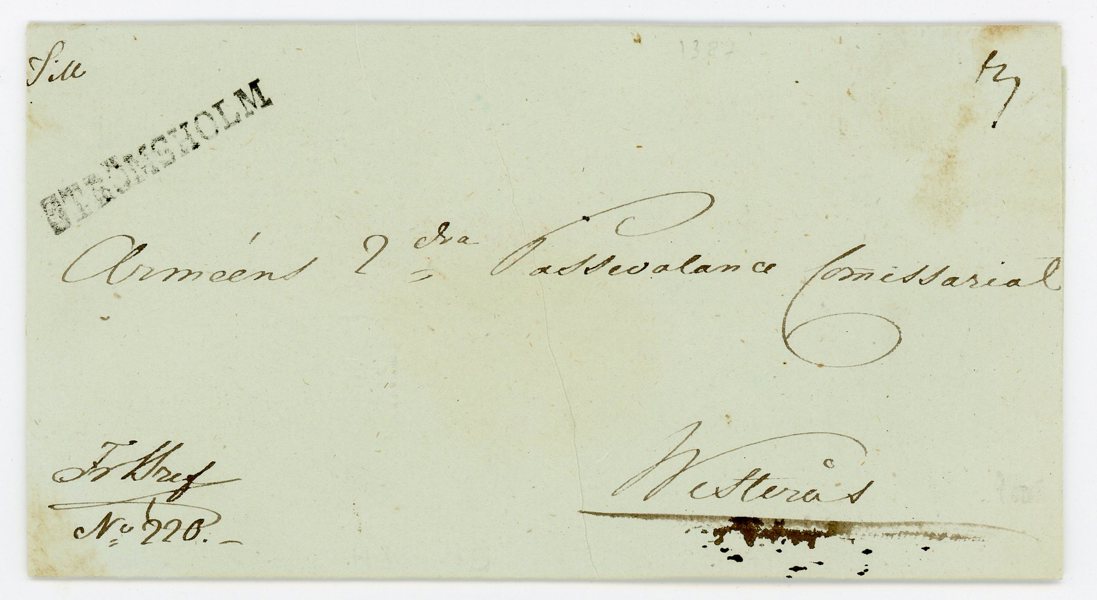 Till
STRÖMSHOLM
Arméens 2dra Passevolance Comissariat
Westerås
Fr Bref
No 220.